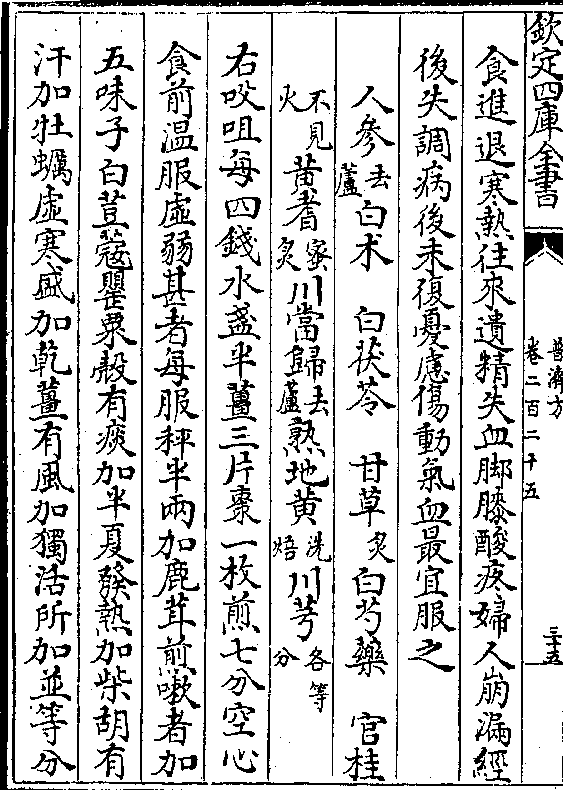 欽定四庫全書
普濟方
卷二百二十五
三十五
食進退寒熱往來遺精失血脚膝酸疼婦人崩漏經
後失調病後未復憂慮傷動氣血最宜服之
人參去蘆白术 白茯苓 甘草炙白芍藥 官桂
不見火黄耆蜜炙川當歸去蘆熟地黄洗焙川芎各等分
右㕮咀每四錢水盞半薑三片棗一枚煎七分空心
食前温服虛弱甚者每服秤半兩加鹿茸煎嗽者加
五味子白荳蔻罌粟殻有痰加半夏發熱加柴胡有
汗加牡蠣虛寒盛加乾薑有風加獨活所加並等分